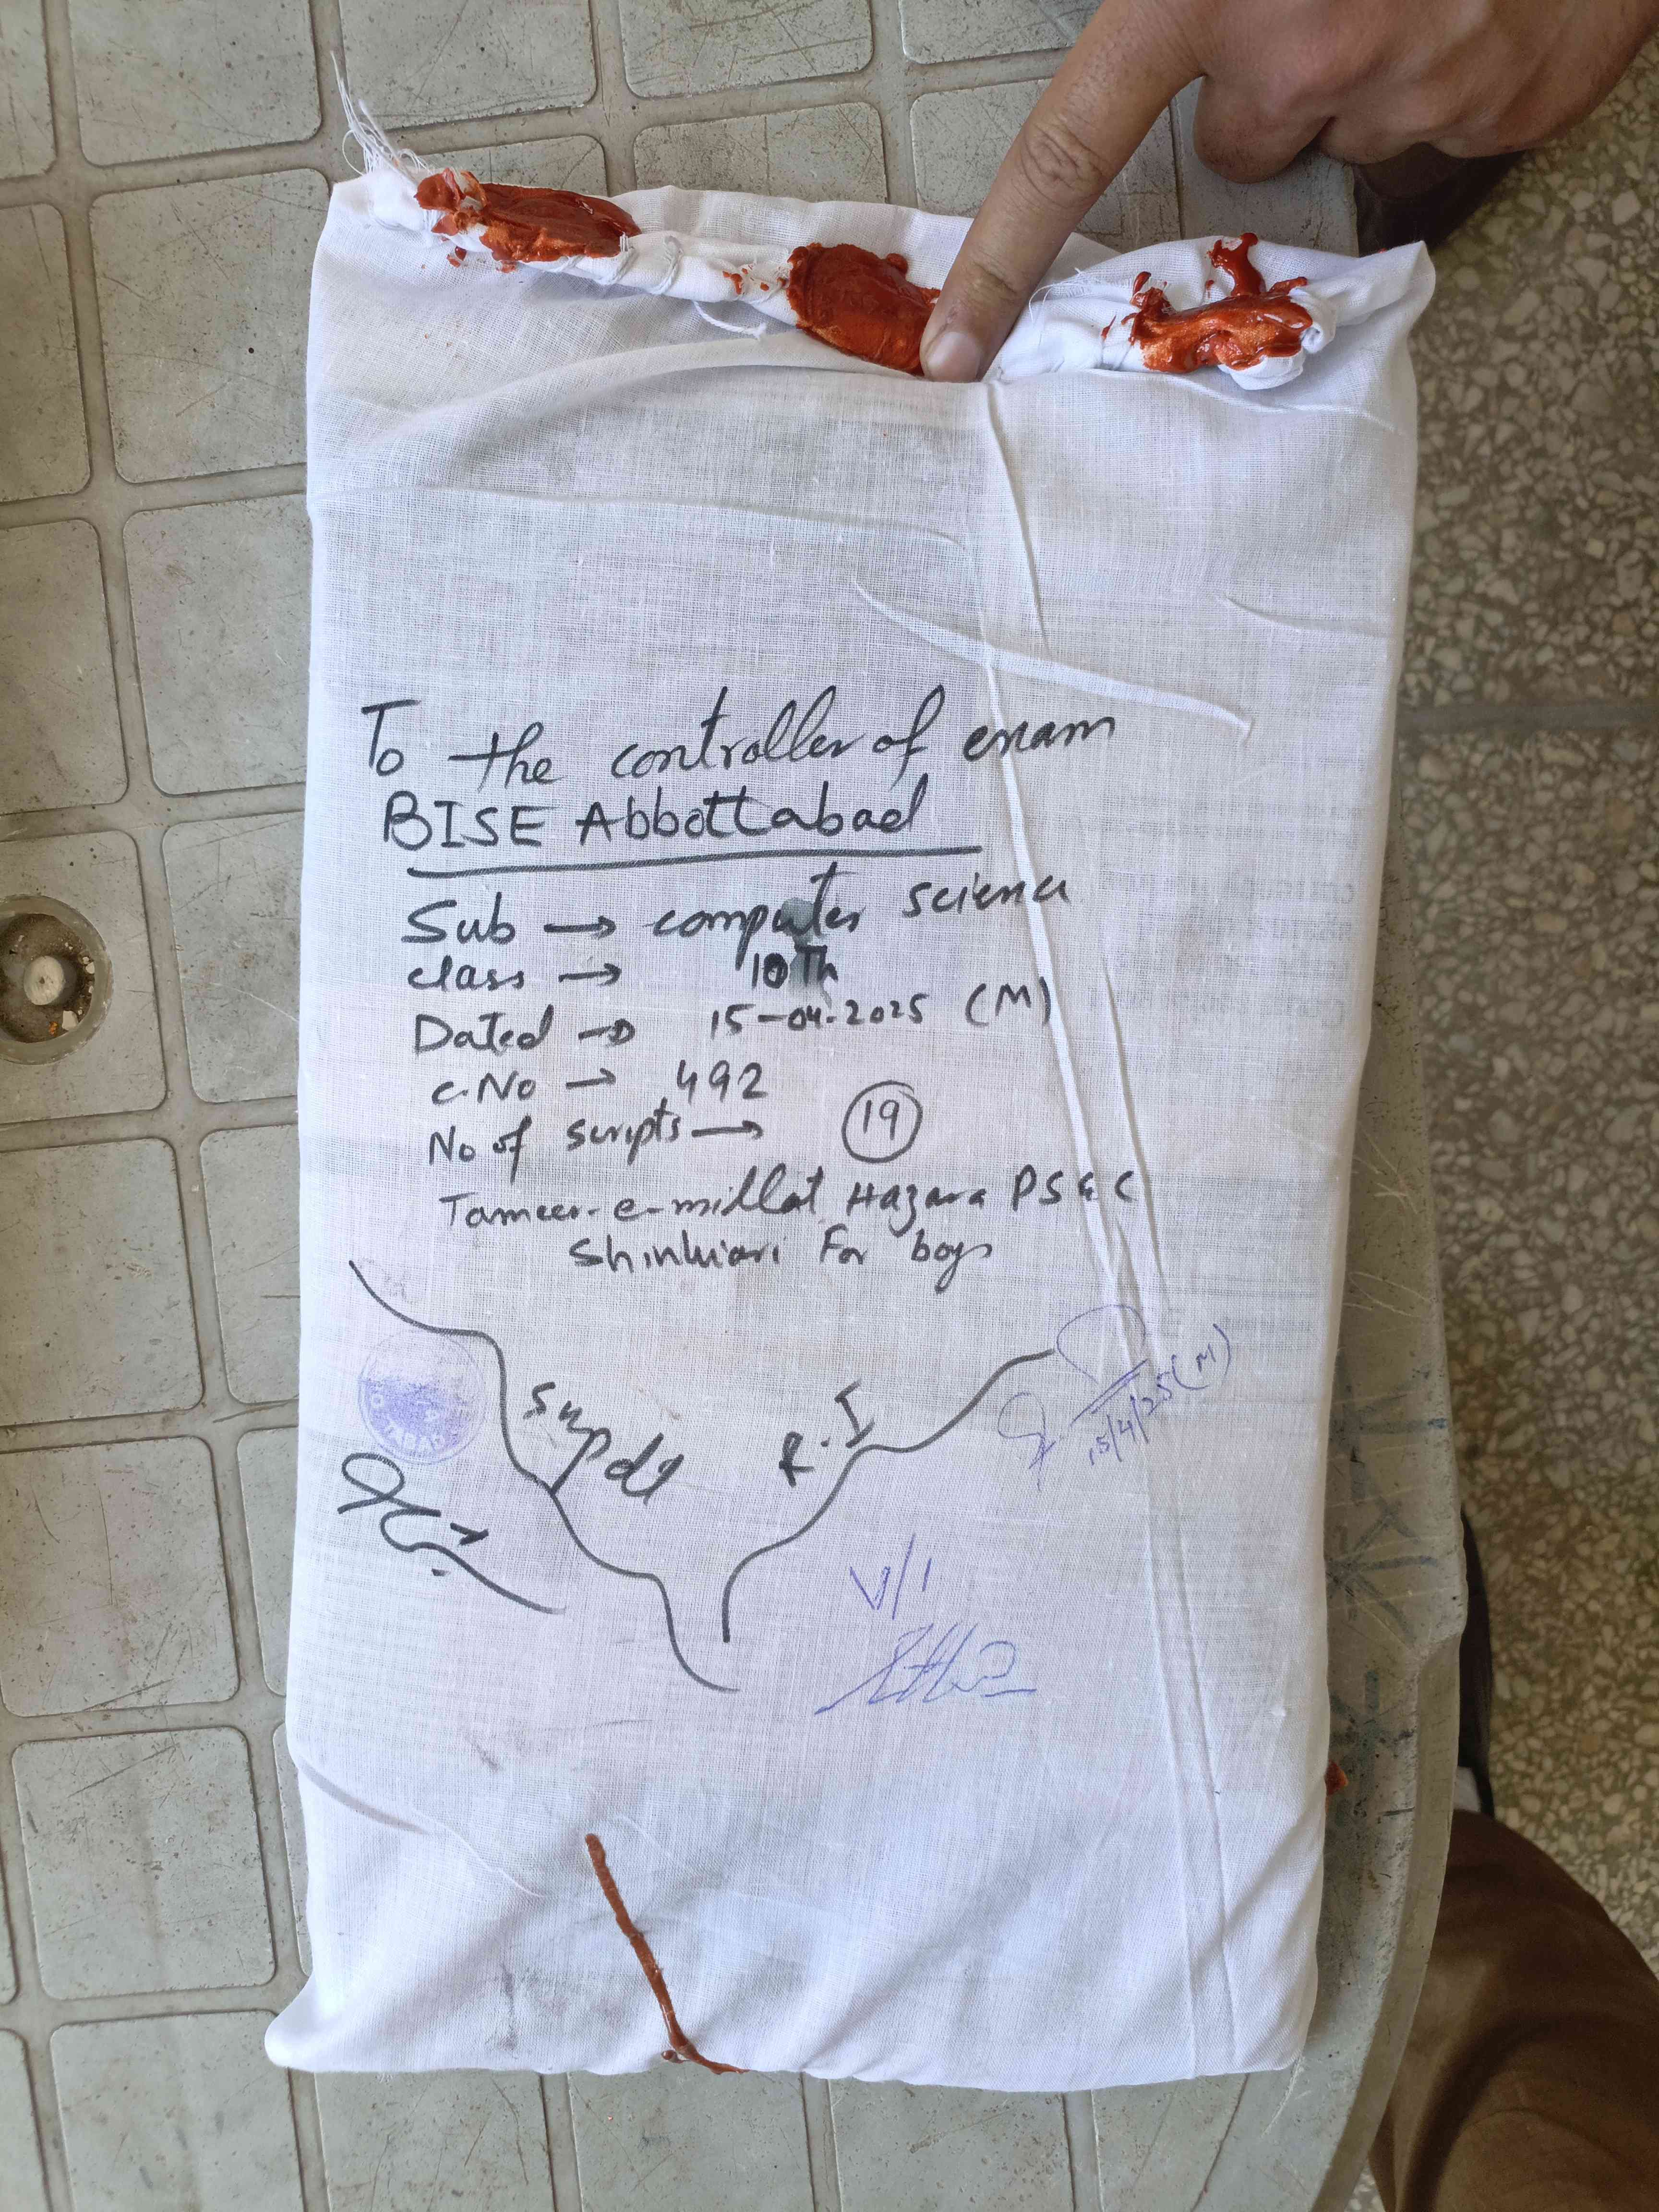 To the controller of exam
BISE Abbottabad
Sub → computer science
class → 10Th
Dated → 15-04-2025 (M)
c.No → 492
No of scripts → 19
Tameer-e-millat Hazara PS & C
Shinkiari For boys
Supdt
R.I
15/4/25(M)
V/1